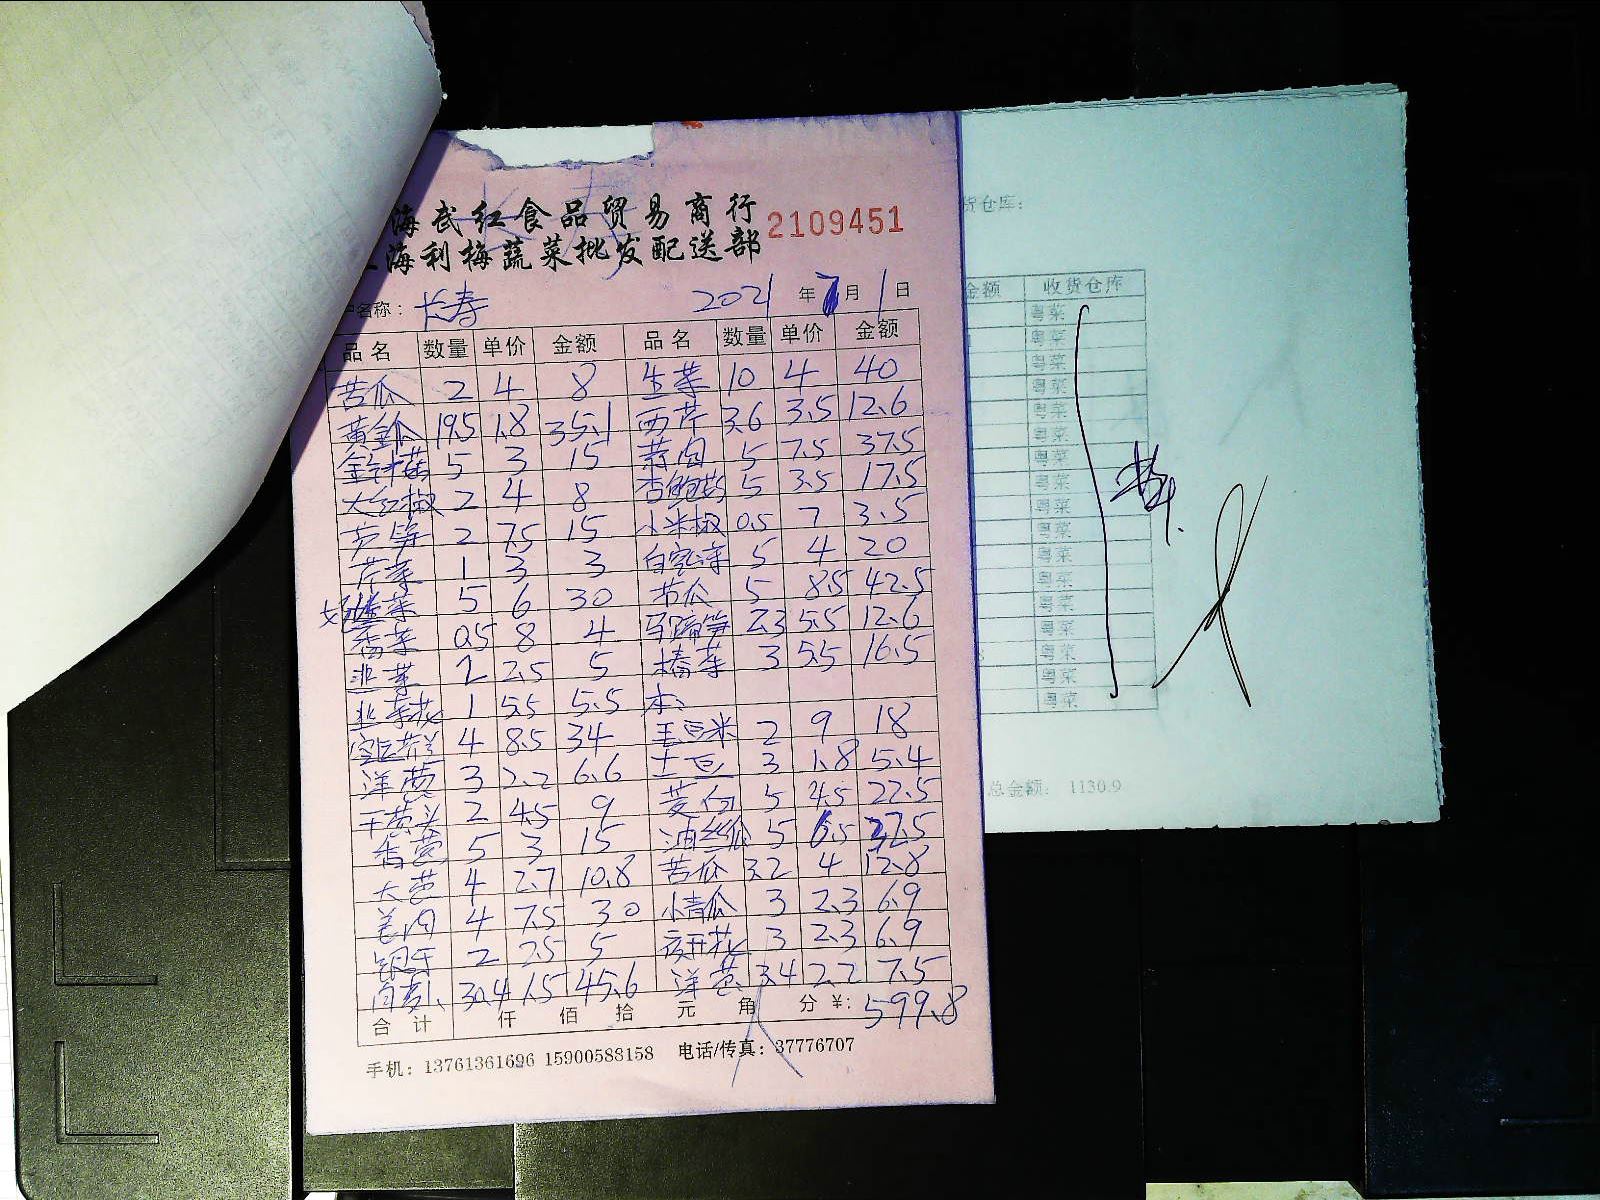 海武红食品贸易商行
上海利梅蔬菜批发配送部
2109451
户名称: 长寿 2021年7月1日
品名 数量 单价 金额 品名 数量 单价 金额
苦瓜 2 4 8 生菜 10 4 40
黄金瓜 19.5 1.8 35.1 西芹 3.6 3.5 12.6
金针菇 5 3 15 蒜肉 5 7.5 37.5
大红椒 2 4 8 杏鲍菇 5 3.5 17.5
芦笋 2 7.5 15 小米椒 0.5 7 3.5
芹菜 1 3 3 5 4 20
5 6 30 节瓜 5 8.5 42.5
香菜 0.5 8 4 马蹄笋 2.3 5.5 12.6
韭菜 2 2.5 5 3 5.5 16.5
韭菜花 1 5.5 5.5 本:
4 8.5 34 毛豆米 2 9 18
洋葱 3 2.2 6.6 土豆 3 1.8 5.4
干葱头 2 4.5 9 茭白 5 4.5 22.5
香葱 5 3 15 油丝瓜 5 5.5 27.5
大葱 4 2.7 10.8 苦瓜 3.2 4 12.8
姜肉 4 7.5 30 小青瓜 3 2.3 6.9
银牙 2 2.5 5 3 2.3 6.9
30.4 1.5 45.6 洋葱 3.4 2.2 7.5
合计 仟 佰 拾 元 角 分 ¥: 599.8
手机: 13761361696 15900588158 电话/传真: 37776707
货仓库:
金额 收货仓库
粤菜
粤菜
粤菜
粤菜
粤菜
粤菜
粤菜
粤菜
粤菜
粤菜
粤菜
粤菜
粤菜
粤菜
粤菜
粤菜
粤菜
总金额: 1130.9